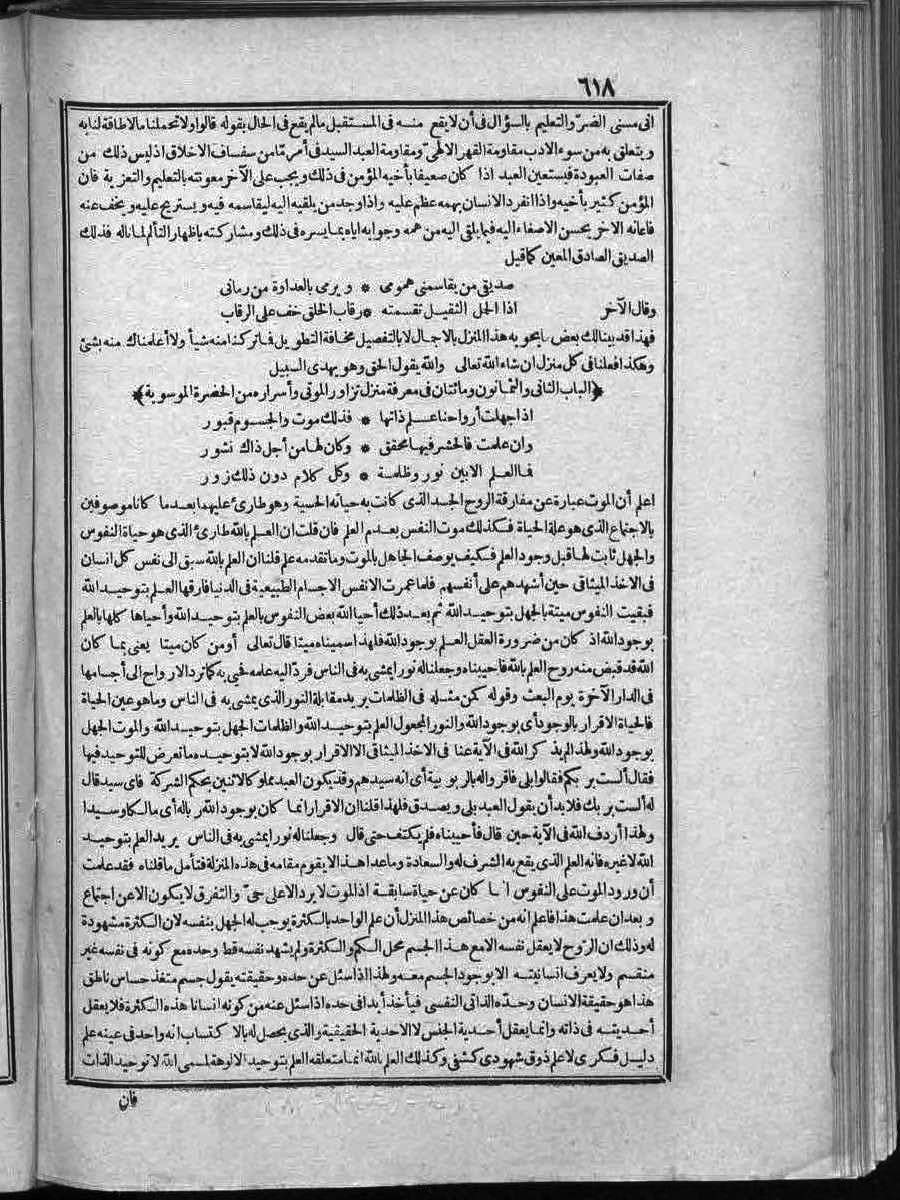 ٦١٨
انى مسنى الضر والتعليم بالسؤال فى أن لا يقع منه فى المستقبل مالم يقع فى الحال بقوله قالوا ولا تحملنا مالا طاقة لنا به
ويتعلق به من سوء الادب مقاومة القهر الالهىّ ومقاومة العبد السيد فى أمر مّا من سفساف الاخلاق اذ ليس ذلك من
صفات العبودة فيستعين العبد اذا كان ضعيفا بأخيه المؤمن فى ذلك ويجب على الآخر معونته بالتعليم والتعزية فان
المؤمن كثير بأخيه واذا انفرد الانسان بهمه عظم عليه واذا وجد من يلقيه اليه ليقاسمه فيه ويستريح عليه ويخف عنه
فاعانه الآخر بحسن الاصغاء اليه فيما يلقى اليه من همه وجوابه اياه بما يسره فى ذلك ومشاركته باظهار التألم لما ناله فذلك
الصديق الصادق المعين كما قيل
صديقى من يقاسمنى همومى * ويرمى بالعداوة من رمانى
وقال الآخر اذا الحمل الثقيل تقسمته * رقاب الخلق خف على الرقاب
فهذا قد بينا لك بعض ما يحويه هذا المنزل بالاجمال لا بالتفصيل مخافة التطويل فما تركنا منه شيأ ولا أعلمناك منه بشئ
وهكذا فعلنا فى كل منزل ان شاء الله تعالى والله يقول الحق وهو يهدى السبيل
﴿الباب الثانى والثمانون ومائتان فى معرفة منزل تزاور الموتى وأسراره من الحضرة الموسوية﴾
اذا جهلت أرواحنا علم ذاتها * فذلك موت والجسوم قبور
وان علمت فالحشر فيها محقق * وكان لها من أجل ذاك نشور
فما العلم الا بين نور وظلمة * وكل كلام دون ذلك زور
اعلم أن الموت عبارة عن مفارقة الروح الجسد الذى كانت به حياته الحسية وهو طارئ عليهما بعدما كانا موصوفين
بالاجتماع الذى هو علة الحياة فكذلك موت النفس بعدم العلم فان قلت ان العلم بالله طارئ الذى هو حياة النفوس
والجهل ثابت لها قبل وجود العلم فكيف يوصف الجاهل بالموت وما تقدمه علم قلنا ان العلم بالله سبق الى نفس كل انسان
فى الاخذ الميثاقى حين أشهدهم على أنفسهم فلما عمرت الانفس الاجسام الطبيعية فى الدنيا فارقها العلم بتوحيد الله
فبقيت النفوس ميتة بالجهل بتوحيد الله ثم بعد ذلك أحيا الله بعض النفوس بالعلم بتوحيد الله وأحياها كلها بالعلم
بوجود الله اذ كان من ضرورة العقل العلم بوجود الله فلهذا سميناه ميتا قال تعالى أومن كان ميتا يعنى بما كان
الله قد قبض منه روح العلم بالله فاحييناه وجعلنا له نورا يمشى به فى الناس فردّ اليه علمه فحيى به كما ترد الارواح الى أجسامها
فى الدار الآخرة يوم البعث وقوله كمن مثله فى الظلمات يريد مقابلة النور الذى يمشى به فى الناس وما هو عين الحياة
فالحياة الاقرار بالوجود أى بوجود الله والنور المجعول العلم بتوحيد الله والظلمات الجهل بتوحيد الله والموت الجهل
بوجود الله ولهذا لم يذكر الله فى الآية عنا فى الاخذ الميثاقى الا الاقرار بوجود الله لا بتوحيده ما تعرض للتوحيد فيها
فقال ألست بربكم فقالوا بلى فاقروا له بالربوبية أى انه سيدهم وقد يكون العبد مملوكا لاثنين بحكم الشركة فاى سيد قال
له ألست بربك فلا بد أن يقول العبد بلى ويصدق فلهذا قلنا ان الاقرار انما كان بوجود الله ربا له أى مالكا وسيدا
ولهذا أردف الله فى الآية حين قال فأحييناه فلم يكتف حتى قال وجعلنا له نورا يمشى به فى الناس يريد العلم بتوحيد
الله لا غيره فانه العلم الذى يقع به الشرف له والسعادة وما عدا هذا لا يقوم مقامه فى هذه المنزلة فتأمل ما قلناه فقد علمت
أن ورود الموت على النفوس انما كان عن حياة سابقة اذ الموت لا يرد الا على حىّ والتفرق لا يكون الا عن اجتماع
وبعد ان علمت هذا فاعلم انه من خصائص هذا المنزل أن علم الواحد بالكثرة يوجب له الجهل بنفسه لان الكثرة مشهودة
له وذلك ان الرّوح لا يعقل نفسه الا مع هذا الجسم محل الكم والكثرة ولم يشهد نفسه قط وحده مع كونه فى نفسه غير
منقسم ولا يعرف انسانيته الا بوجود الجسم معه ولهذا اذا سئل عن حده وحقيقته يقول جسم متغذ حساس ناطق
هذا هو حقيقة الانسان وحدّه الذاتى النفسى فيأخذ أبدا فى حده اذا سئل عنه من كونه انسانا هذه الكثرة فلا يعقل
أحديته فى ذاته وانما يعقل أحدية الجنس لا الاحدية الحقيقية والذى يحصل له بالاكتساب انه واحد فى عينه علم
دليل فكرى لا علم ذوق شهودى كشفى وكذلك العلم بالله انما متعلقه العلم بتوحيد الالوهة لمسمى الله لا توحيد الذات
فان